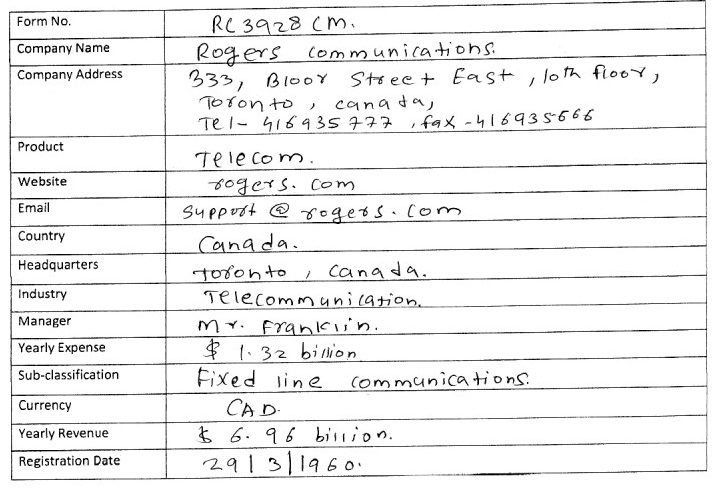 Form No. RC 3928 CM.
Company Name Rogers communications.
Company Address 333, Bloor Street East, 10th floor,
Toronto, canada,
Tel- 416935777, fax -416935666
Product Telecom.
Website rogers.com
Email support@rogers.com
Country Canada.
Headquarters toronto, canada.
Industry Telecommunication.
Manager Mr. Franklin.
Yearly Expense $ 1.32 billion
Sub-classification Fixed line communications.
Currency CAD.
Yearly Revenue $ 6.96 billion.
Registration Date 29/3/1960.